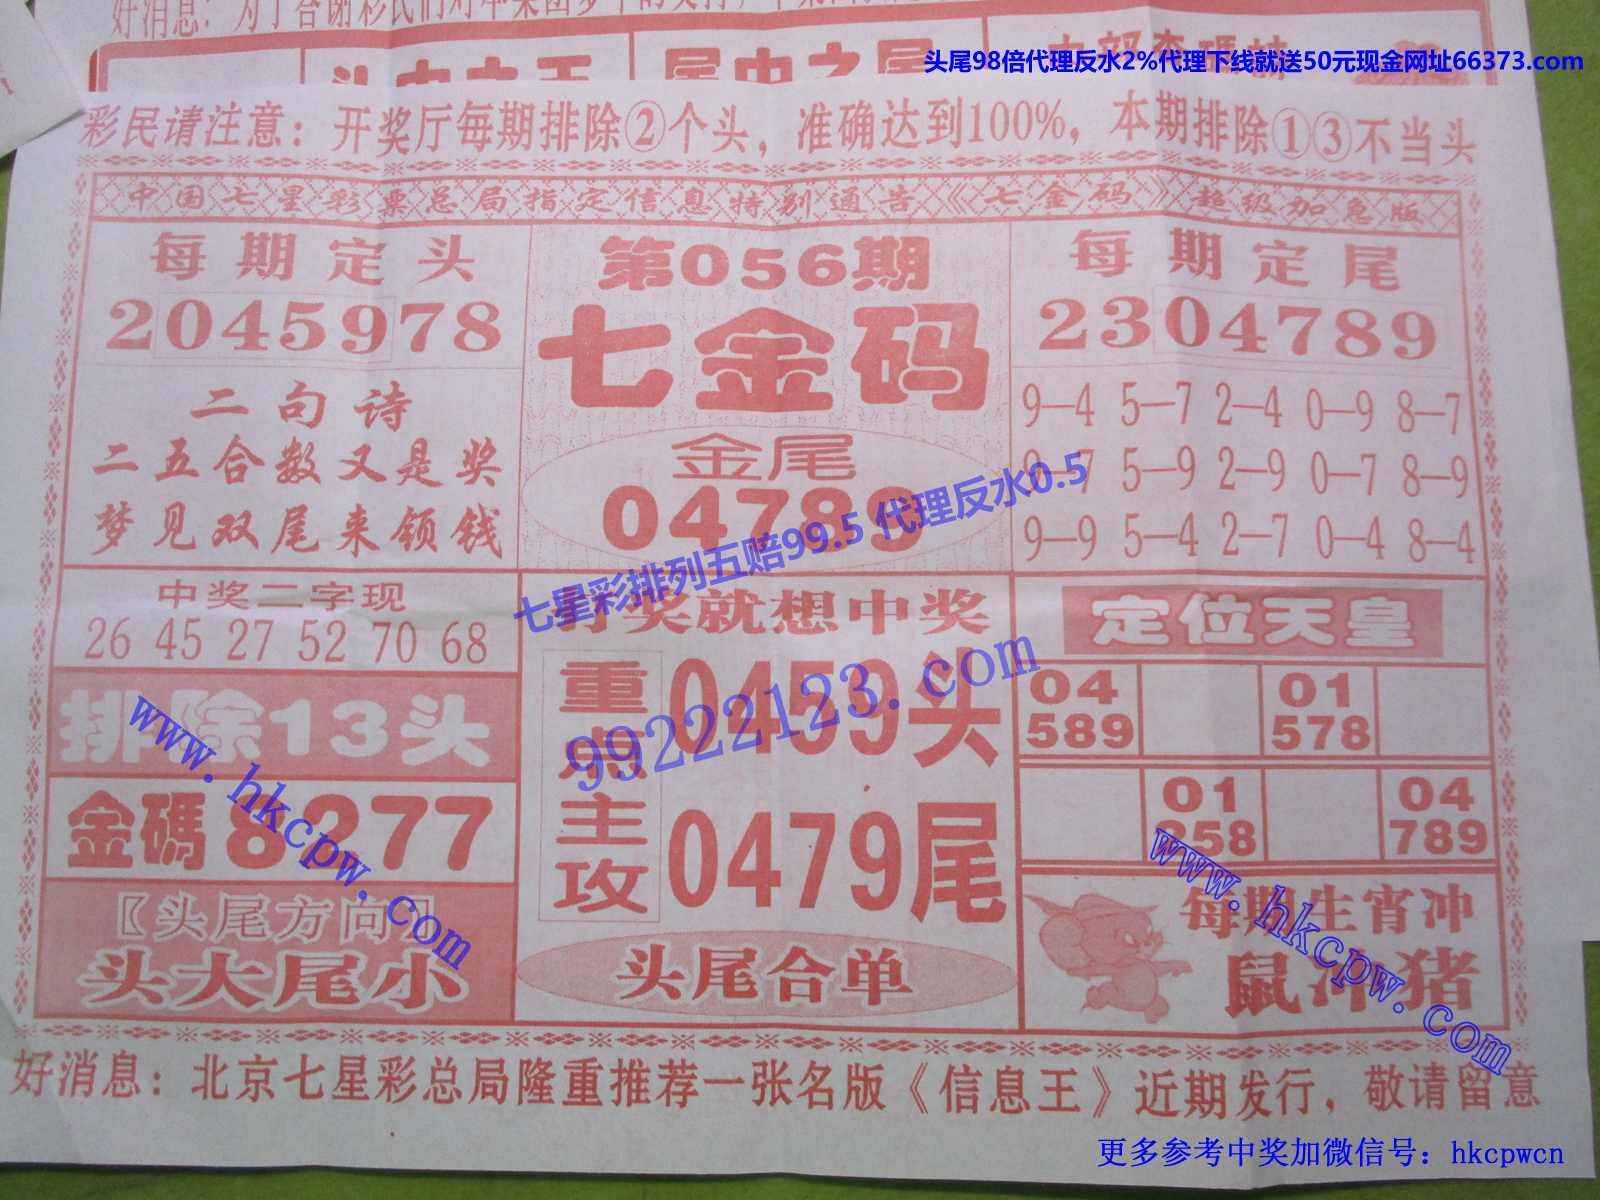 好消息：为了答谢彩民们对本集团多年的支持，
头中之王
尾中之尾
头尾98倍代理反水2%代理下线就送50元现金网址66373.com
彩民请注意：开奖厅每期排除②个头，准确达到100%，本期排除①③不当头
中国七星彩票总局指定信息特别通告《七金码》超级加急版
每期定头
2045978
二句诗
二五合数又是奖
梦见双尾来领钱
第056期
七金码
金尾
04789
每期定尾
2304789
9—4 5—7 2—4 0—9 8—7
9—7 5—9 2—9 0—7 8—9
9—9 5—4 2—7 0—4 8—4
七星彩排列五赔99.5 代理反水0.5
中奖二字现
26 45 27 52 70 68
排除13头
金碼8277
〖头尾方向〗
头大尾小
奖就想中奖
重点主攻
0459头
0479尾
头尾合单
99222123.com
定位天皇
04
589
01
578
01
258
04
789
每期生宵冲
鼠冲猪
www.hkcpw.com
www.hkcpw.com
好消息：北京七星彩总局隆重推荐一张名版《信息王》近期发行，敬请留意
更多参考中奖加微信号：hkcpwcn